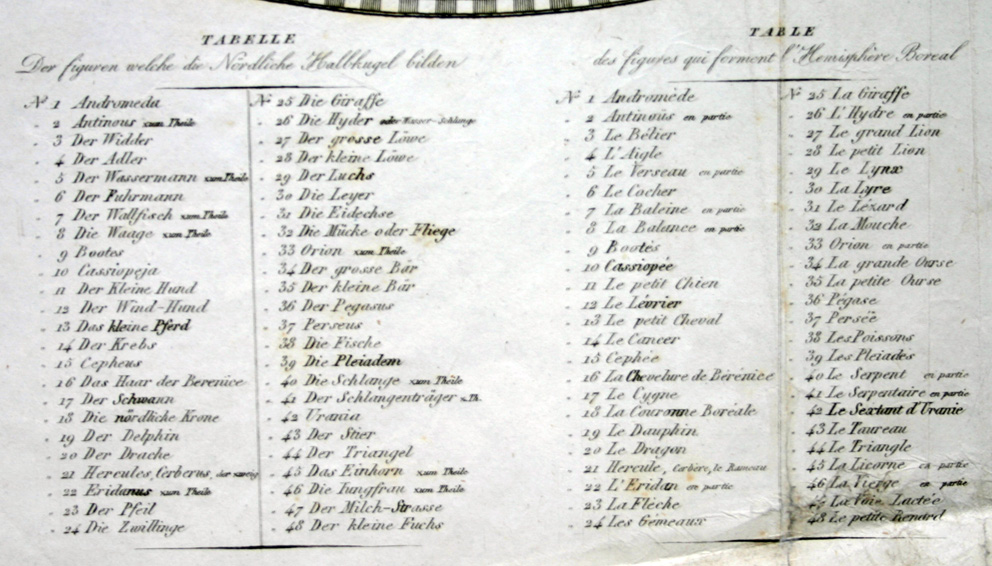 TABELLE
Der figuren welche die Nördliche Halbkugel bilden
Nº 1 Andromeda
2 Antinous zum Theile
3 Der Widder
4 Der Adler
5 Der Wassermann zum Theile
6 Der Fuhrmann
7 Der Wallfisch zum Theile
8 Die Waage zum Theile
9 Bootes
10 Cassiopeja
11 Der Kleine Hund
12 Der Wind-Hund
13 Das kleine Pferd
14 Der Krebs
15 Cepheus
16 Das Haar der Berenice
17 Der Schwann
18 Die nördliche Krone
19 Der Delphin
20 Der Drache
21 Hercules, Cerberus, der zweig
22 Eridanus zum Theile
23 Der Pfeil
24 Die Zwillinge
Nº 25 Die Giraffe
26 Die Hyder oder Wasser-Schlange
27 Der grosse Löwe
28 Der kleine Löwe
29 Der Luchs
30 Die Leyer
31 Die Eidechse
32 Die Mücke oder Fliege
33 Orion zum Theile
34 Der grosse Bär
35 Der kleine Bär
36 Der Pegasus
37 Perseus
38 Die Fische
39 Die Pleiadem
40 Die Schlange zum Theile
41 Der Schlangenträger z. Th.
42 Urania
43 Der Stier
44 Der Triangel
45 Das Einhorn zum Theile
46 Die Iungfrau zum Theile
47 Der Milch-Strasse
48 Der kleine Fuchs
TABLE
des figures qui forment l'Hemisphère Boreal
Nº 1 Andromède
2 Antinous en partie
3 Le Bélier
4 L'Aigle
5 Le Verseau en partie
6 Le Cocher
7 La Baleine en partie
8 La Balance en partie
9 Bootès
10 Cassiopée
11 Le petit Chien
12 Le Lévrier
13 Le petit Cheval
14 Le Cancer
15 Cephée
16 La Chevelure de Berenice
17 Le Cygne
18 La Couronne Boréale
19 Le Dauphin
20 Le Dragon
21 Hercule, Cerbère, le Rameau
22 L'Eridan en partie
23 La Flèche
24 Les Gémeaux
Nº 25 La Giraffe
26 L'Hydre en partie
27 Le grand Lion
28 Le petit Lion
29 Le Lynx
30 La Lyre
31 Le Lézard
32 La Mouche
33 Orion en partie
34 La grande Ourse
35 La petite Ourse
36 Pégase
37 Persée
38 Les Poissons
39 Les Pleiades
40 Le Serpent en partie
41 Le Serpentaire en partie
42 Le Sextant d'Uranie
43 Le Taureau
44 Le Triangle
45 La Licorne en partie
46 La Vierge en partie
47 La Voie Lactée
48 Le petite Renard